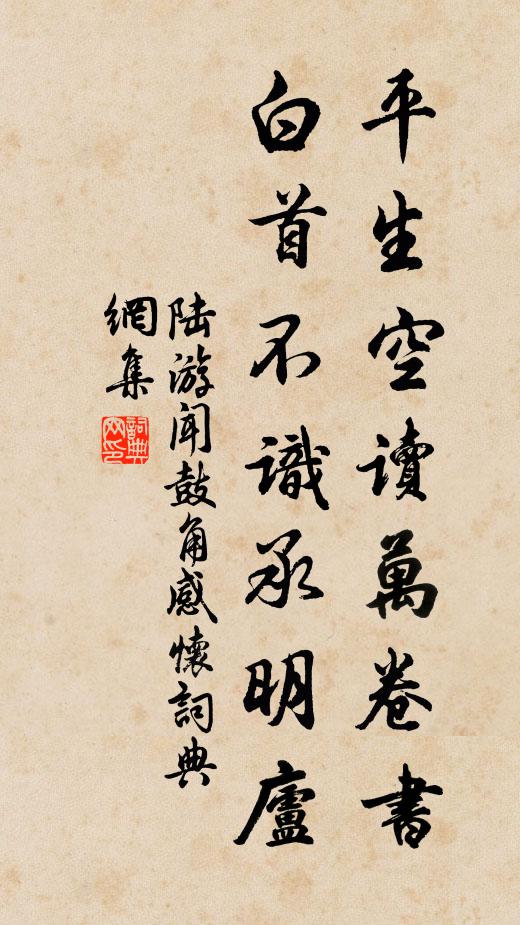 平生空讀萬卷書
白首不識承明廬
陆游闻鼓角感懷詞典
網集
詞典網印